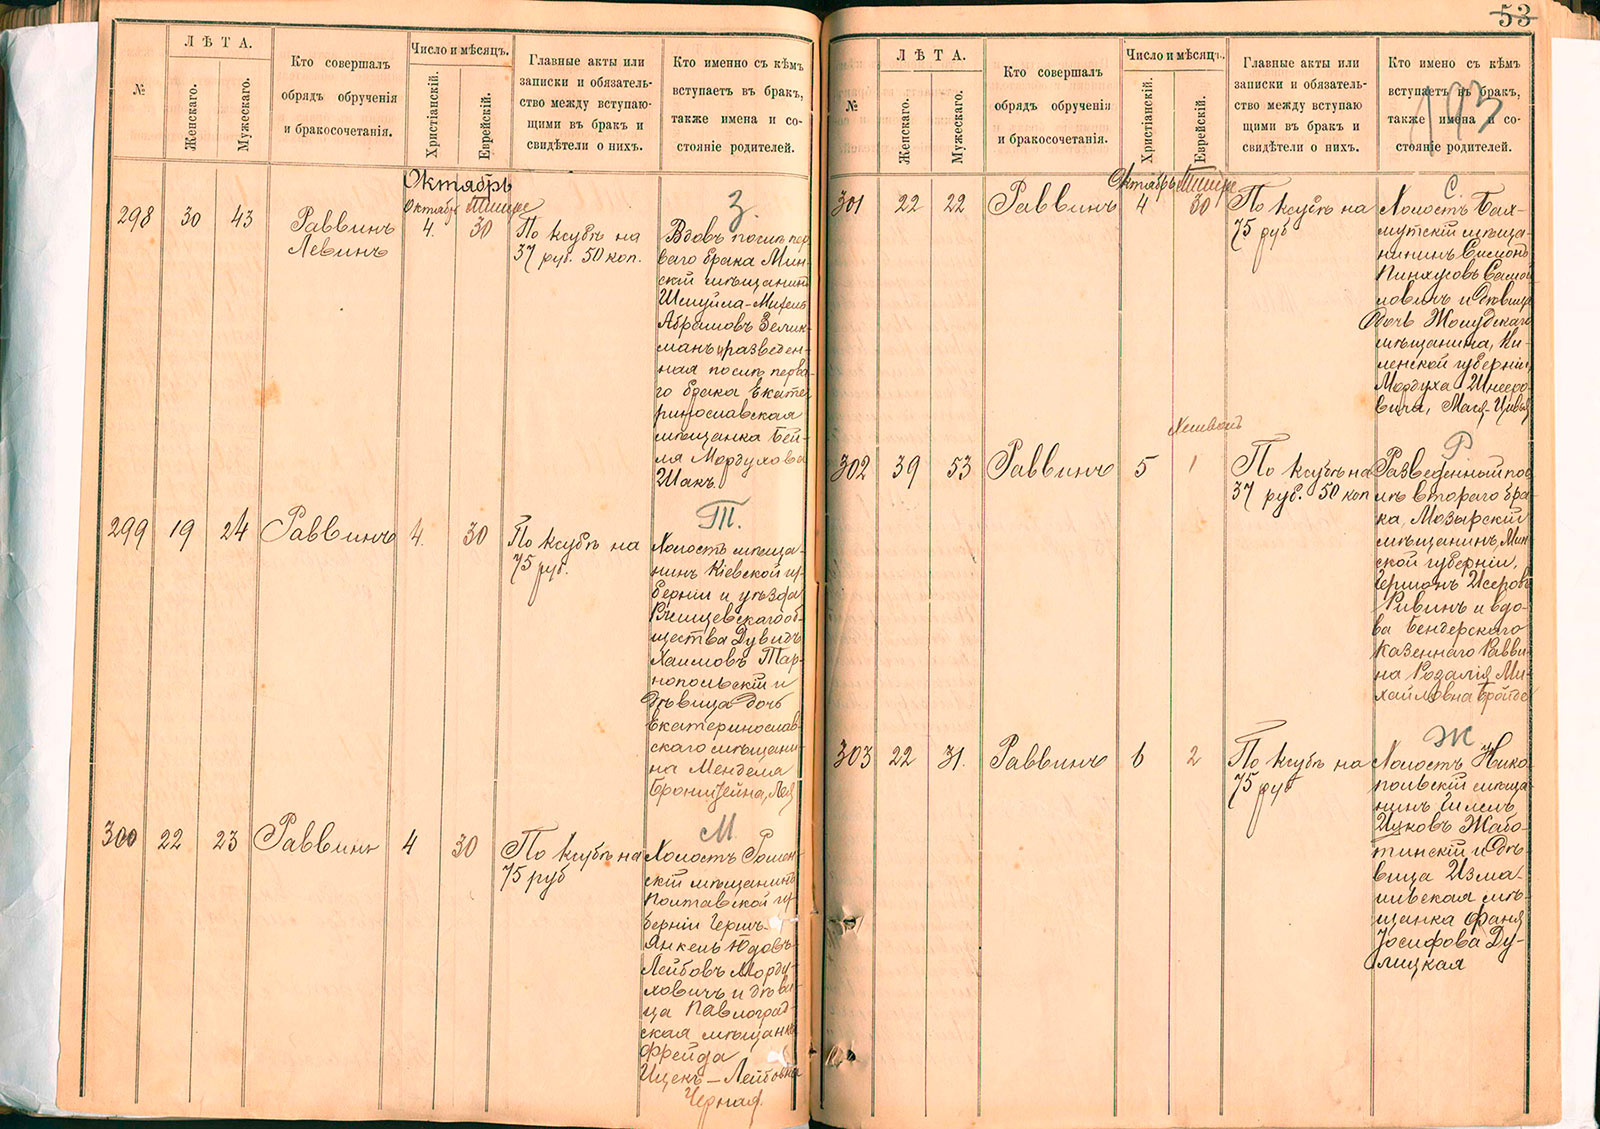 №
ЛѢТА.
Женскаго.
Мужескаго.
Кто совершалъ
обрядъ обрученія
и бракосочетанія.
Число и мѣсяцъ.
Христіанскій.
Еврейскій.
Главные акты или
записки и обязатель-
ство между вступаю-
щими въ бракъ и
свидѣтели о нихъ.
Кто именно съ кѣмъ
вступаетъ въ бракъ,
также имена и со-
стояніе родителей.
Октябрь
298
30
43
Раввинъ
Левинъ
Октябрь
4.
Тишре
30
По Ксубѣ на
37 руб. 50 коп.
З.
Вдовъ послѣ пер
ваго брака Мин-
скій мѣщанинъ
Шмуйла-Михель
Абрамовъ Зелик-
манъ и разведен-
ная послѣ перва-
го брака Екате-
ринославская
мѣщанка Бей-
ля Мордухова
Шакъ.
299
19
24
Раввинъ
4.
30
По Ксубѣ на
75 руб.
Т.
Холостъ мѣща-
нинъ Кіевской гу-
берніи и уѣзда
Ржищевскаго об-
щества Дувидъ
Хаимовъ Тар-
нопольскій и
дѣвица дочь
Екатеринослав-
скаго мѣщани-
на Менделя
Бронштейна, Лея
300
22
23
Раввинъ
4
30
По Ксубѣ на
75 руб
М
Холостъ Ромен-
скій мѣщанинъ
Полтавской гу-
берніи Гершъ-
Янкель Юдовъ-
Лейбовъ Морду-
ховичъ и дѣви-
ца Павлоград-
ская мѣщанка
Фрейда
Ицекъ-Лейбовна
Черная.
53
193
№
ЛѢТА.
Женскаго.
Мужескаго.
Кто совершалъ
обрядъ обрученія
и бракосочетанія.
Число и мѣсяцъ.
Христіанскій.
Еврейскій.
Главные акты или
записки и обязатель-
ство между вступаю
щими въ бракъ и
свидѣтели о нихъ.
Кто имено съ кѣмъ
вступаетъ въ бракъ,
также имена и со-
стояніе родителей.
301
22
22
Раввинъ
Октябрь
4
Тишре
30
По Ксубѣ на
75 руб
С.
Холостъ Бах-
мутскій мѣща-
нинъ Симонъ
Пинхусовъ Самой
ловичъ и дѣвица
дочь Жолудскаго
мѣщанина, Ви-
ленской губерніи
Мордуха
Мася-Цивья
302
39
53
Раввинъ
5
Хешвонъ
1
По Ксубѣ на
37 руб. 50 коп
Р
Разведенный пос
лѣ втораго бра-
ка, Мозырскій
мѣщанинъ, Мин
ской губерніи,
Германъ Исеровъ
Ривинъ и вдо-
ва Бендерскаго
казеннаго Равви-
на Розалія Ми-
хайловна Бройде
303
22
31.
Раввинъ
6
2
По Ксубѣ на
75 руб
Ж
Холостъ Нико
польскій мѣща
нинъ Гилель
Ицковъ Жабо-
тинскій и дѣ
вица Изма-
ильская мѣ-
щанка Фаня
Іосифова Ду-
лицкая